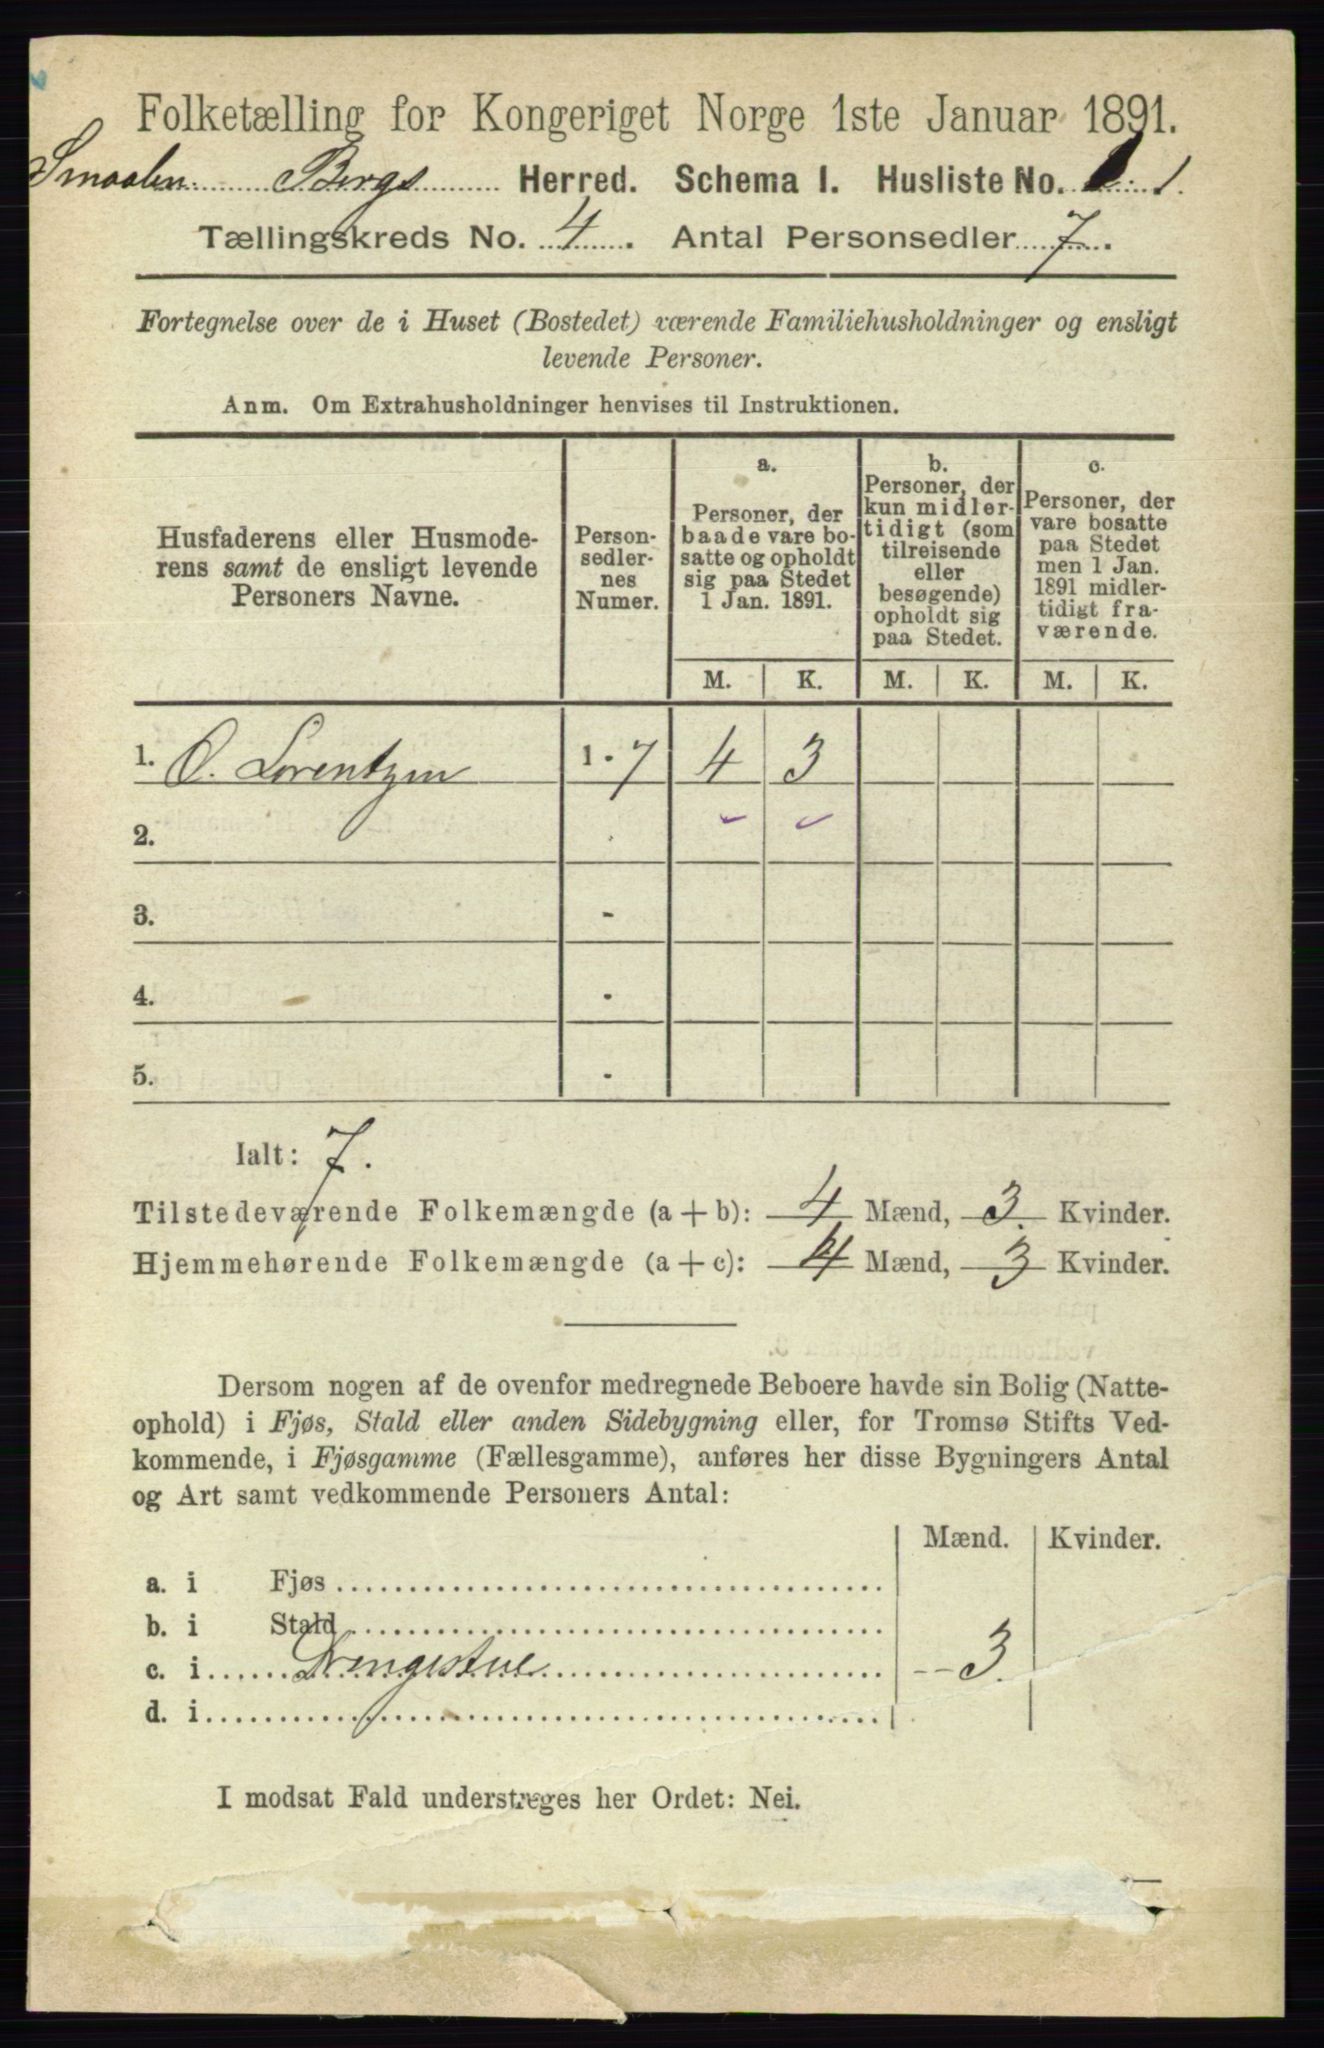 Folketælling for Kongeriget Norge 1ste Januar 1891.
Smaalen. Bergs Herred. Schema I. Husliste No. 1
Tællingskreds No. 4. Antal Personsedler 7.
Fortegnelse over de i Huset (Bostedet) værende Familiehusholdninger og ensligt
levende Personer.
Anm. Om Extrahusholdninger henvises til Instruktionen.
Husfaderens eller Husmode-
rens samt de ensligt levende
Personers Navne.
Person-
sedler-
nes
Numer.
a.
Personer, der
baade vare bo-
satte og opholdt
sig paa Stedet
1 Jan. 1891.
b.
Personer, der
kun midler-
tidigt (som
tilreisende
eller
besøgende)
opholdt sig
paa Stedet.
c.
Personer, der
vare bosatte
paa Stedet
men 1 Jan.
1891 midler-
tidigt fra-
værende.
M. K. M. K. M. K.
1. O. Lorentzen 1 - 7 4 3
2. -
3. -
4. -
5. -
Ialt: 7.
Tilstedeværende Folkemængde (a + b): 4 Mænd, 3. Kvinder.
Hjemmehørende Folkemængde (a + c): 4 Mænd, 3 Kvinder.
Dersom nogen af de ovenfor medregnede Beboere havde sin Bolig (Natte-
ophold) i Fjøs, Stald eller anden Sidebygning eller, for Tromsø Stifts Ved-
kommende, i Fjøsgamme (Fællesgamme), anføres her disse Bygningers Antal
og Art samt vedkommende Personers Antal:
Mænd. Kvinder.
a. i Fjøs
b. i Stald
c. i Drengestue -- 3.
d. i
I modsat Fald understreges her Ordet: Nei.